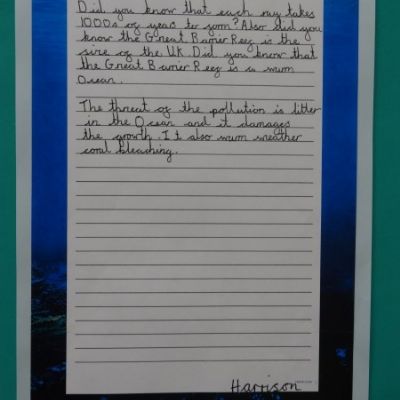 Did you know that each ray takes
1000s of years to form? Also did you
know the Great Barrier Reef is the
size of the UK. Did you know that
the Great Barrier Reef is a warm
Ocean.
The threat of the pollution is litter
in the Ocean and it damages
the growth. It also warm weather
coral bleaching.
Harrison